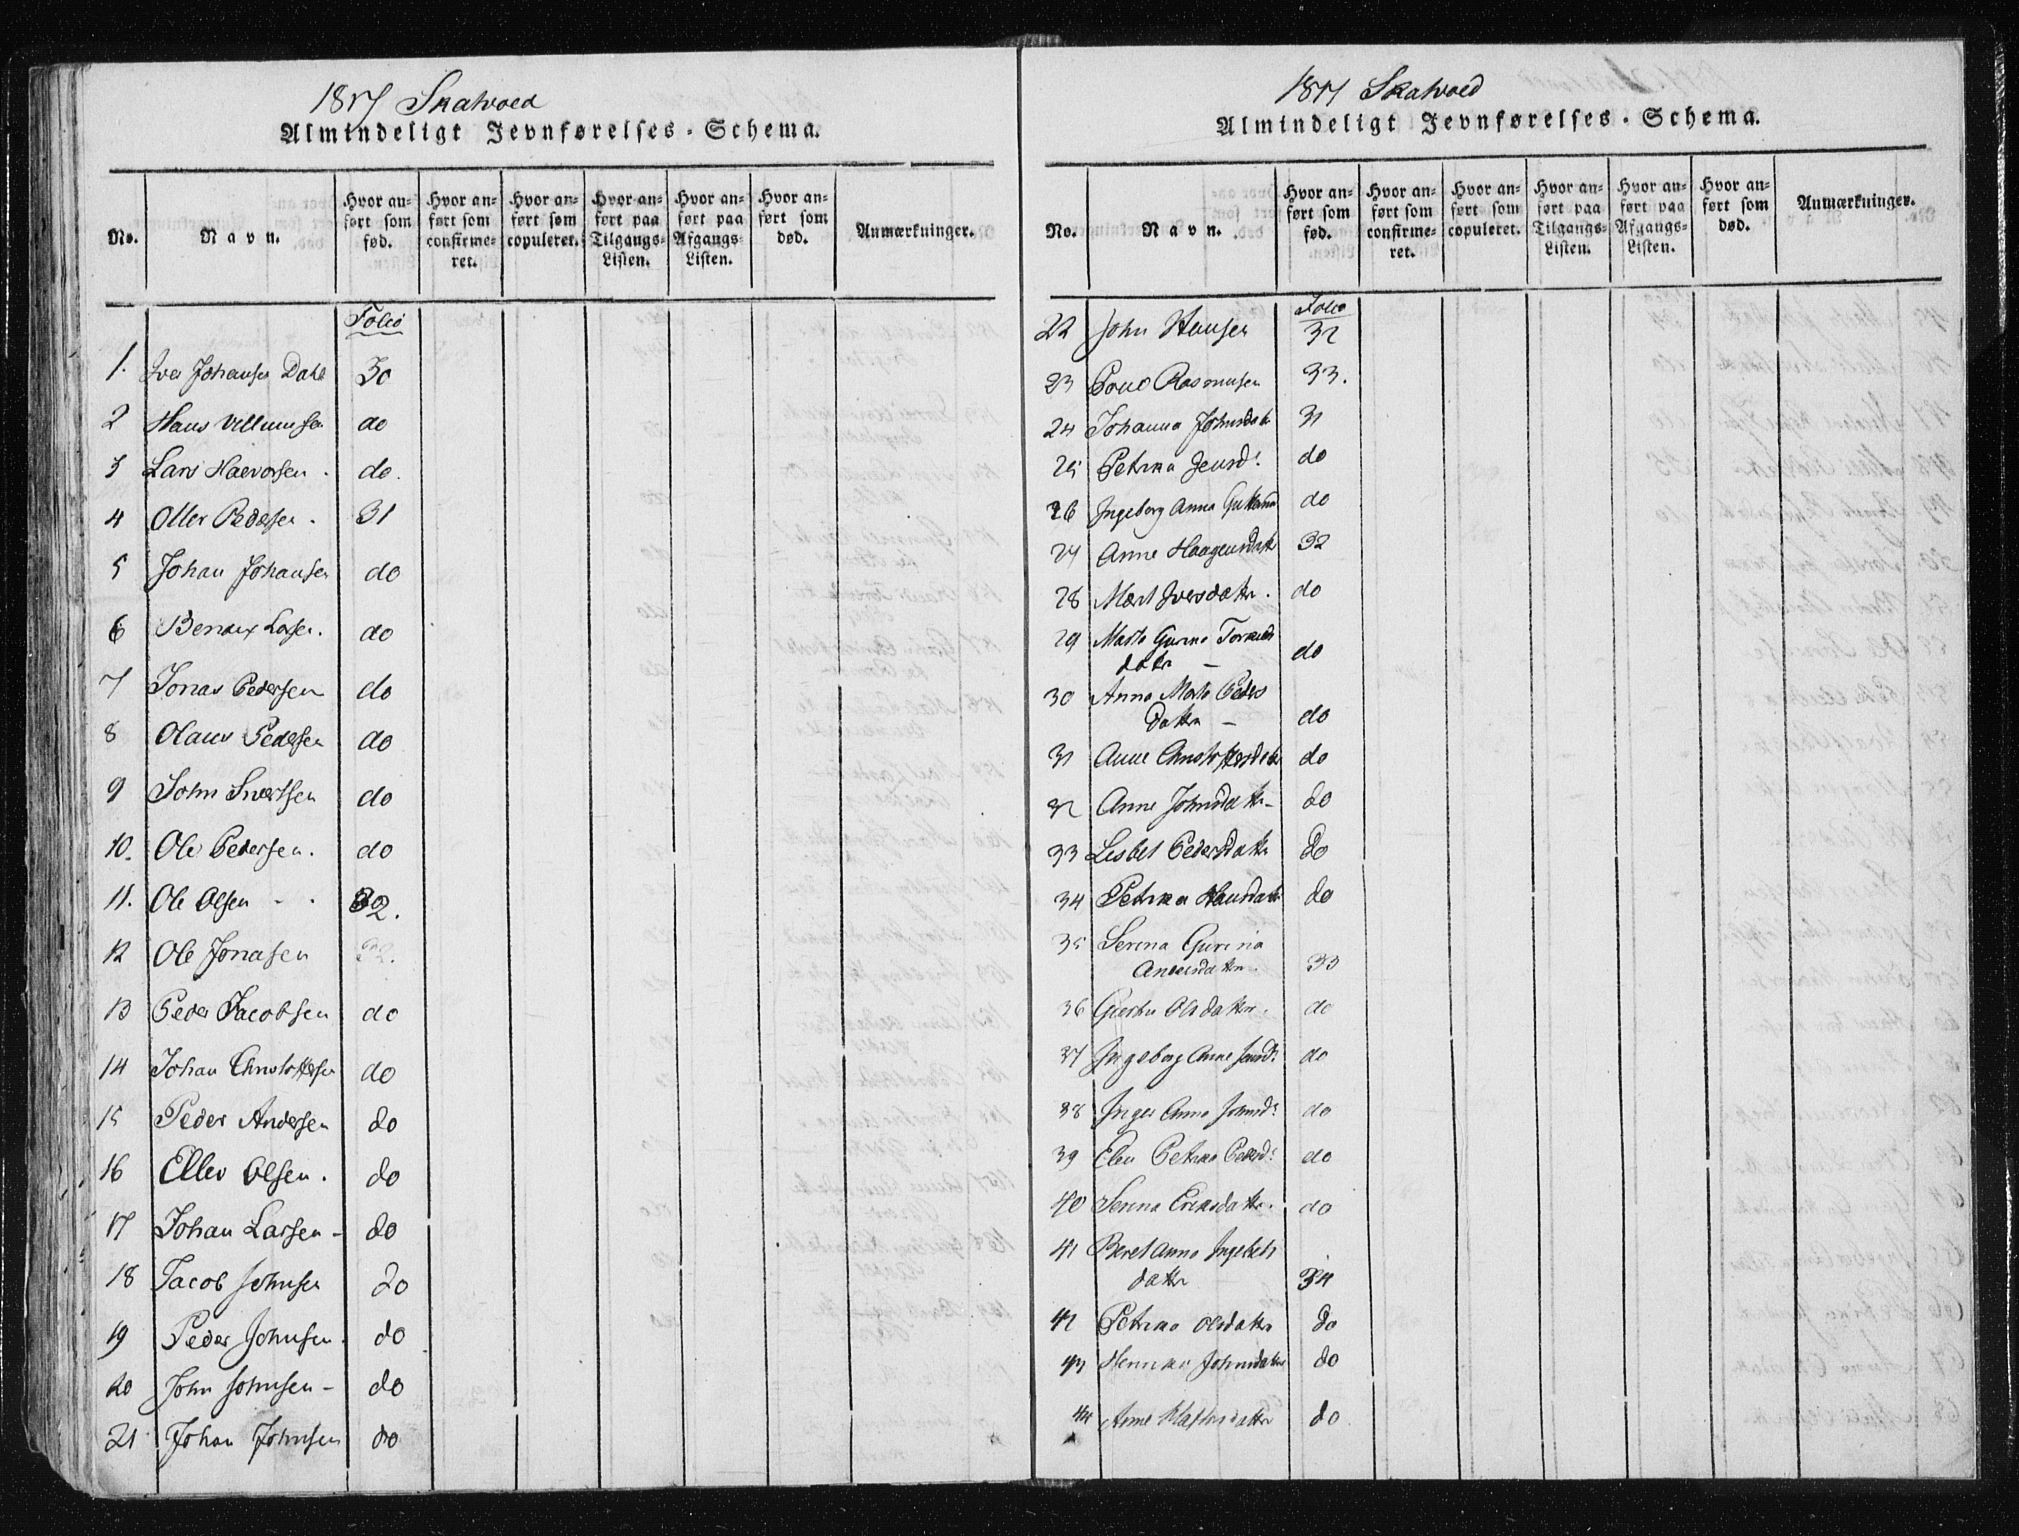 1817 Skatvold
Almindeligt Jevnførelses-Schema.
No.
Navn.
Hvor anført som fød.
Hvor anført som confirmeret.
Hvor anført som copuleret.
Hvor anført paa Tilgangs-Listen.
Hvor anført paa Afgangs-Listen.
Hvor anført som død.
Anmærkninger.
Folio
1. Iver Johansen Dahl 30
2 Hans Villumsen do
3 Lars Haevorsen. do.
4 Oller Pedersen. 31
5 Johan Johansen do
6 Bendix Larsen. do
7 Jonas Pedersen do
8 Olaus Pedersen do
9 John Sivertsen do
10. Ole Pedersen. do
11. Ole Olsen - . 32.
12 Ole Jonasen 32.
13 Peder Jacobsen do
14 Johan Christoffersen do
15 Peder Andersen do
16 Ellev Olsen. do
17 Johan Larsen - do
18 Jacob Johnsen do
19 Peder Johnsen. do
20 John Johnsen - do
21 Johan Johnsen do
1817 Skatvold
Almindeligt Jevnførelses-Schema.
No.
Navn.
Hvor anført som fød.
Hvor anført som confirmeret.
Hvor anført som copuleret.
Hvor anført paa Tilgangs-Listen.
Hvor anført paa Afgangs-Listen.
Hvor anført som død.
Anmærkninger.
Folio
22 John Hansen 32
23 Poul Rasmusen 33.
24 Johanna Johnsdatr 31
25 Petrika Jensd. do
26 Ingeborg Anna do
27 Anne Haagensdatr 32
28 Marit Iversdatr. do
29 Marta Gurina
datr - do
30 Anna Marta Peders
Datter - do
31 Anne Christoffersdatr do
32 Anne Johnsdatr - do
33 Lisbet Pedersdatr do
34 Petrika Hansdatr do
35 Serina Gurina
Andersdatter. 33
36 Gjertru Olsdatter. do
37 Ingeborg Anne Jensd. do
38 Inger Anna Johnsd. do
39 Elen Petrika Pedersd. do
40 Serina Eriksdatter. do
41 Beret Anna Ingebrets
datter 34
42 Petrika Olsdatter do
43 Henrika Johnsdatter do
44 Anne do